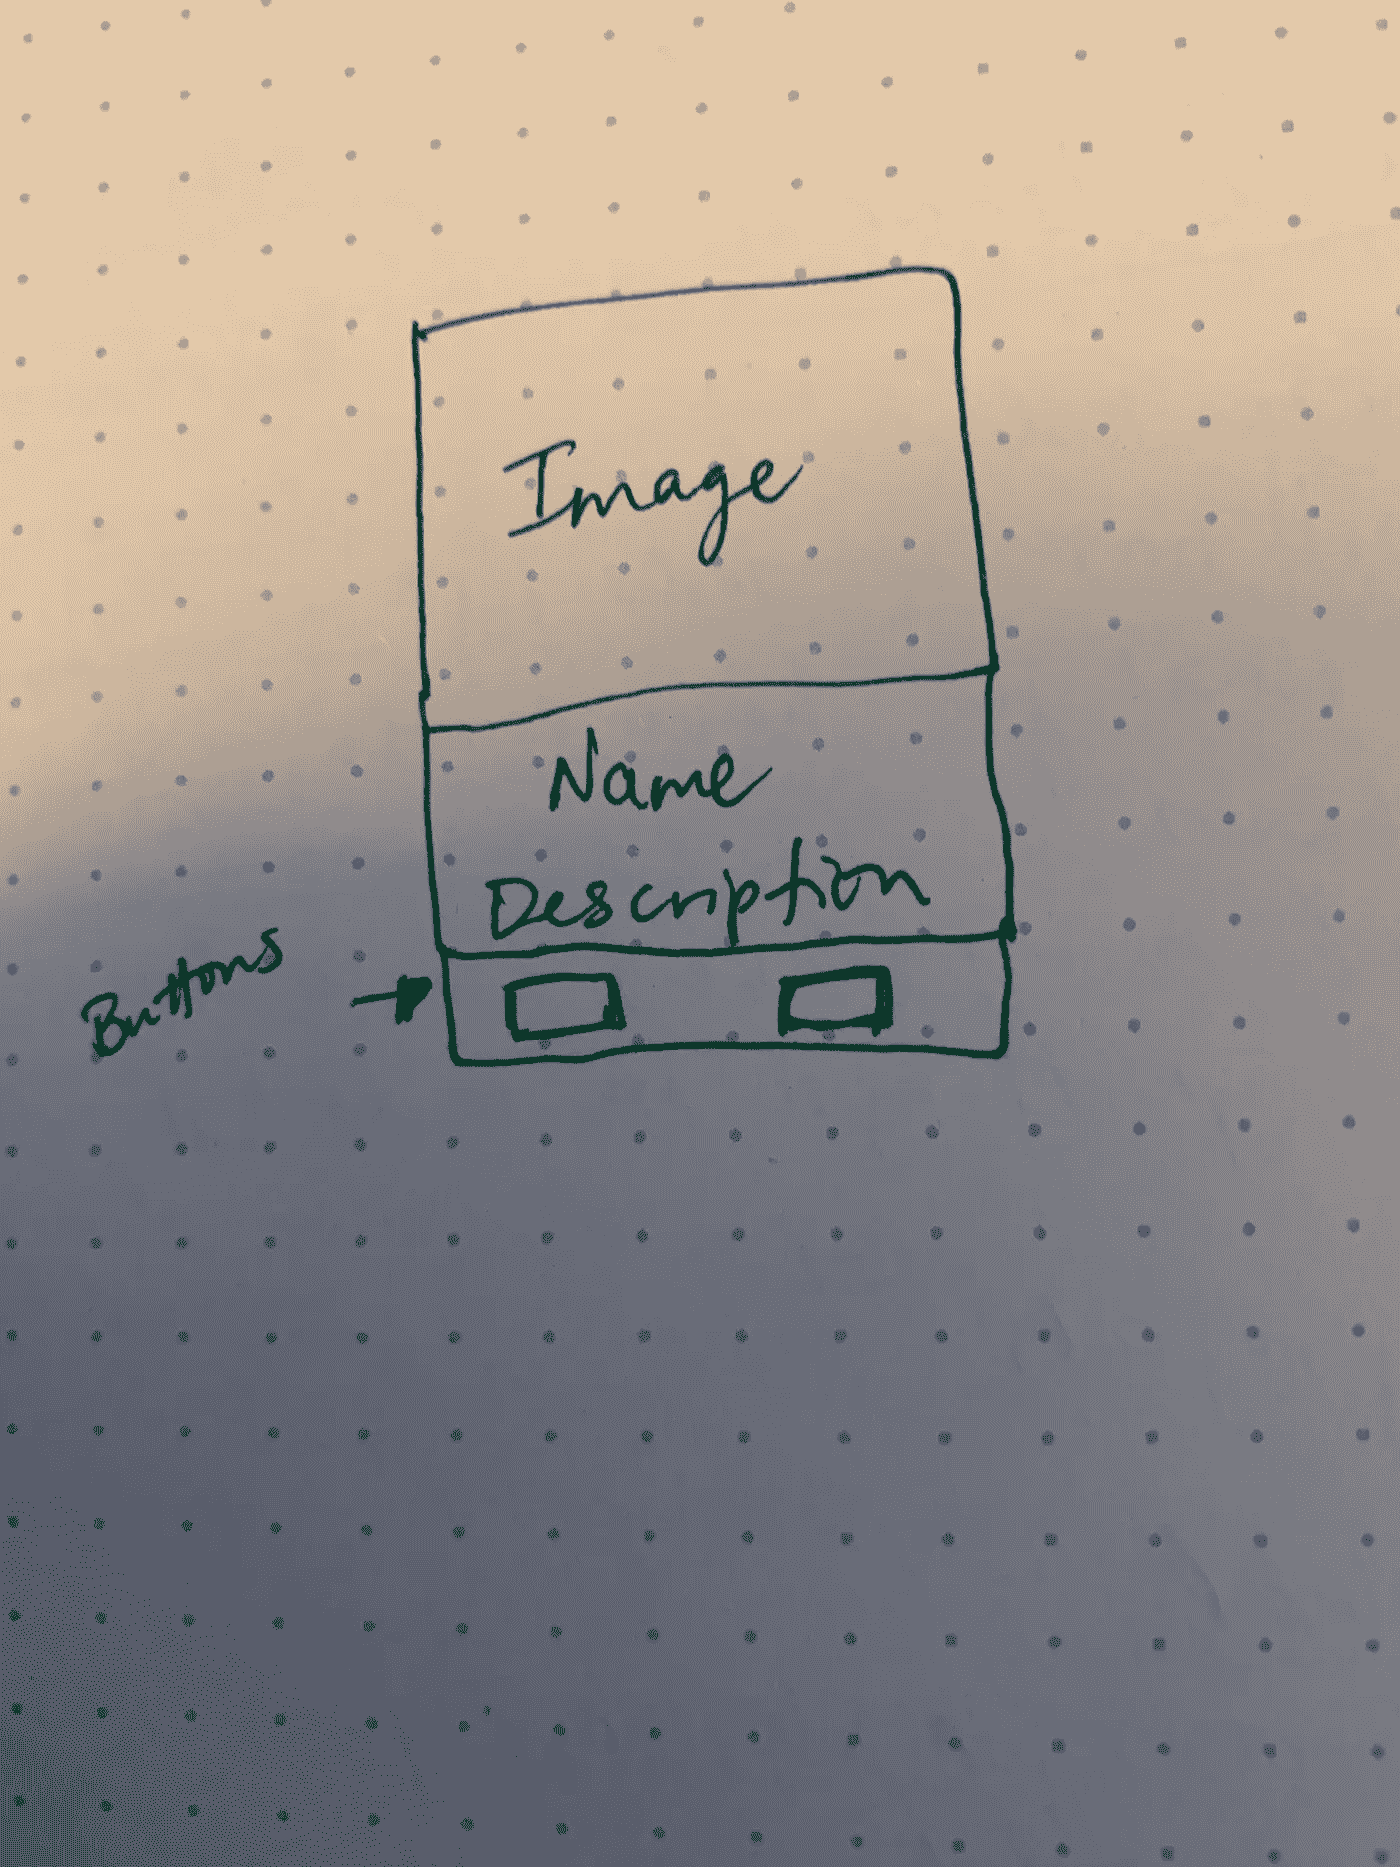 Image
Name
Description
Buttons